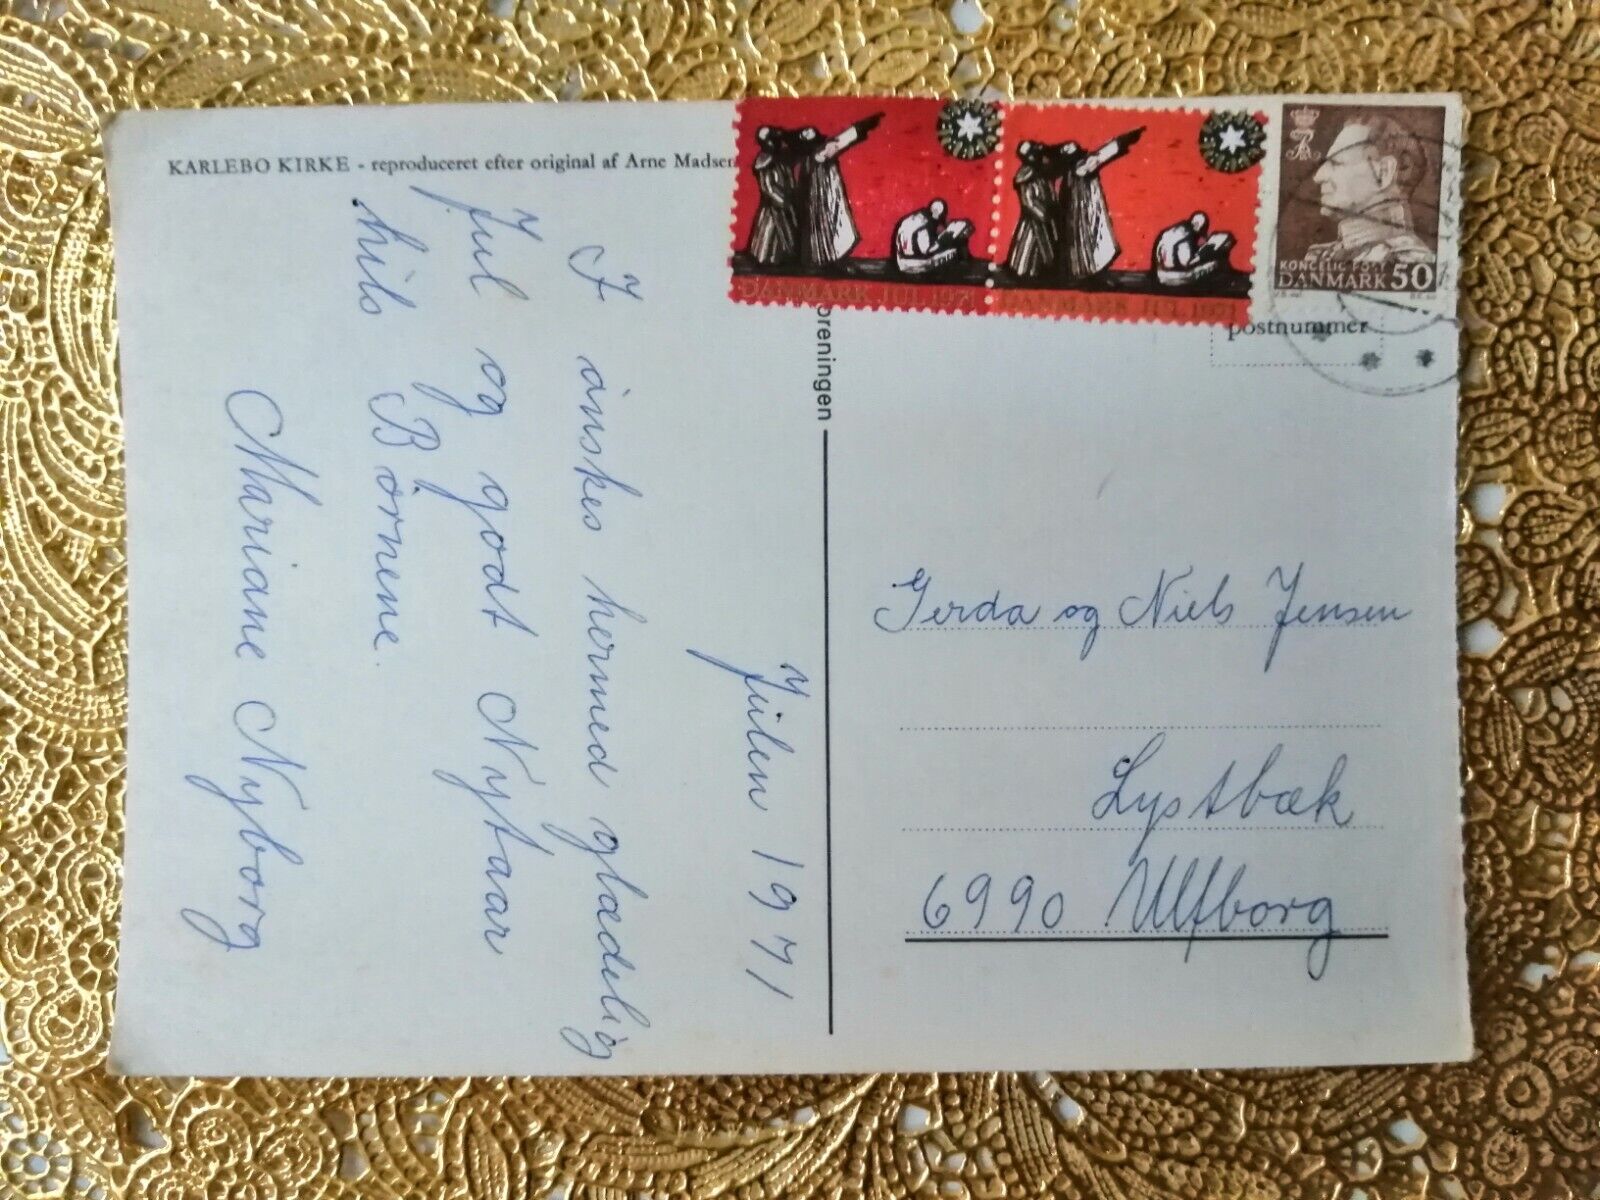 KARLEBO KIRKE - reproduceret efter original af Arne Madsen
Julen 1971
I ønskes hermed glædelig
Jul og godt Nytaar
hils Børnene.
Mariane Nyborg
oreningen
DANMARK JUL 1971
DANMARK JUL 1971
KONGELIG POST
DANMARK 50
postnummer
Gerda og Niels Jensen
Lystbæk
6990 Ulfborg